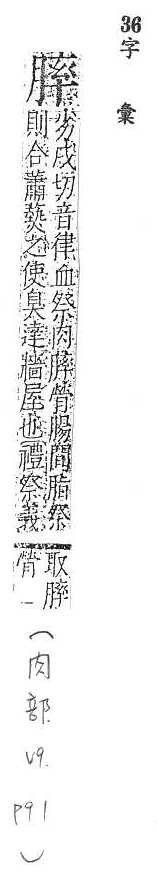 36 字彙
膟
劣戌切音律血祭肉膟膋腸間脂祭
則合蕭爇之使臭達牆屋也禮祭義
取膟
膋一
(肉部 v9. p91)